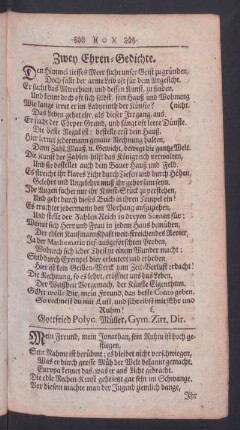 Zwey Ehren-Gedichte.
Den Himmel tieffes Meer sucht unser Geist zu gründen,
Doch fällt der arme Leib oft für dem Angesicht.
Er sucht das Alterthum, und dessen Kunst zu finden,
Und kennt doch oft sich selbst, sein Hauß und Wohnung
(nicht.
Wie lange irret er im Labyrinth der Künste?
Das bevor gehet ihr, als dieser Irrgang aus.
Er sucht der Cörper Grentz, und fängt viel leere Dünste.
Die beste Regul ist: bestelle erst dein Hauß.
Hier lernet jedermann genaue Rechnung halten,
Denn Zahl, Maaß, u. Gewicht, bewegt die gantze Welt.
Die Kunst der Zahlen hilfft das Königreich verwalten,
Und sie bestellet auch dem Bauer Hauß und Feld.
Es streicht ihr klares Licht durch Tieffen und durch Höhen,
Gelehrt und Ungelehrte muß ihr gehorsam seyn.
Ihr Augen sucher nur ihr Kunst-Stück zu verstehen,
Und geht durch dieses Buch in ihren Tempel ein:
Es pfleget jedermann der Vorhang aufzuziehen,
Und stellt der Zahlen Reich in dreyen Scenen für;
Womit sich Herr und Frau in jedem Hauß bemühen,
Der edlen Kauffmannschafft weit-streichendes Revier,
Ja der Mathematic tief-ausgeforschten Proben,
Wodurch sich jeder Theil zu einem Wunder macht:
Sind durch Exempel hier erleutert und erhoben.
Hier ist kein Grillen-Werck zum Zeit-Verlust erdacht!
Die Rechnung, so es lehret, eröffnet uns das Leben,
Der Menschen Vortgenach, der Künste Eigenthum.
GOtt wolle Dir, mein Freund, das beste Conto geben,
So rechnest du mit Lust, und schreibst mit Ehr und
Ruhm!
Gottfried Polyc. Müller, Gym. Zitt. Dir.
Mein Freund, mein Jonathan, sein Ruhm ist hoch ge-
stiegen,
Sein Nahme ist berühmt; es bleibet nicht verschwiegen,
Was er durch grosse Müh der Welt bekannt gemacht,
Europa kennet das, was er ans Licht gebracht.
Die edle Rechen-Kunst geht ietzt gar sehr im Schwange,
Vor diesem machte man der Jugend ziemlich bange,
Ihr